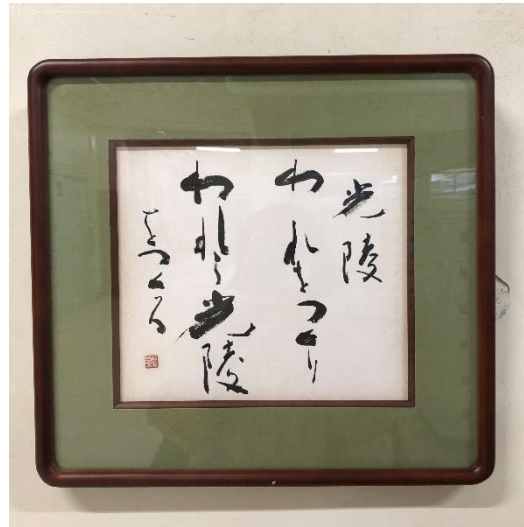 光陵
われをつくり
われら光陵
をつくる